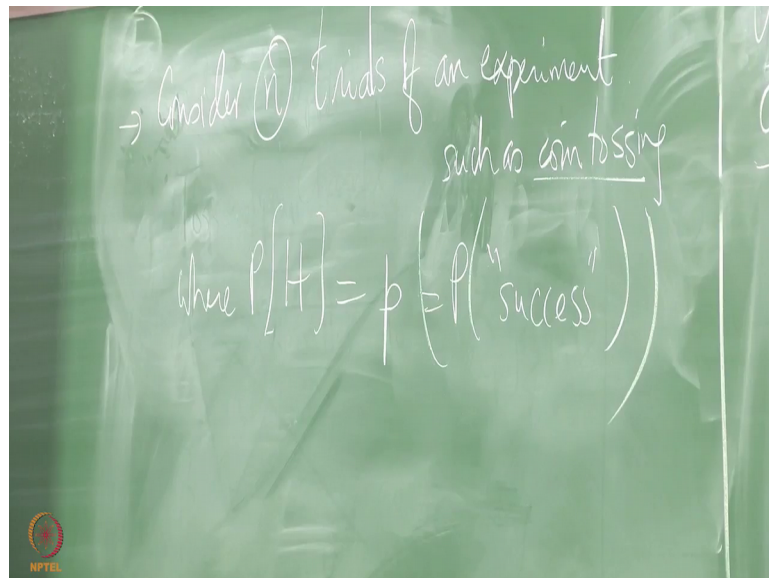 → Consider (n) trials of an experiment
such as coin tossing
where P[H] = p (= P("success"))
NPTEL